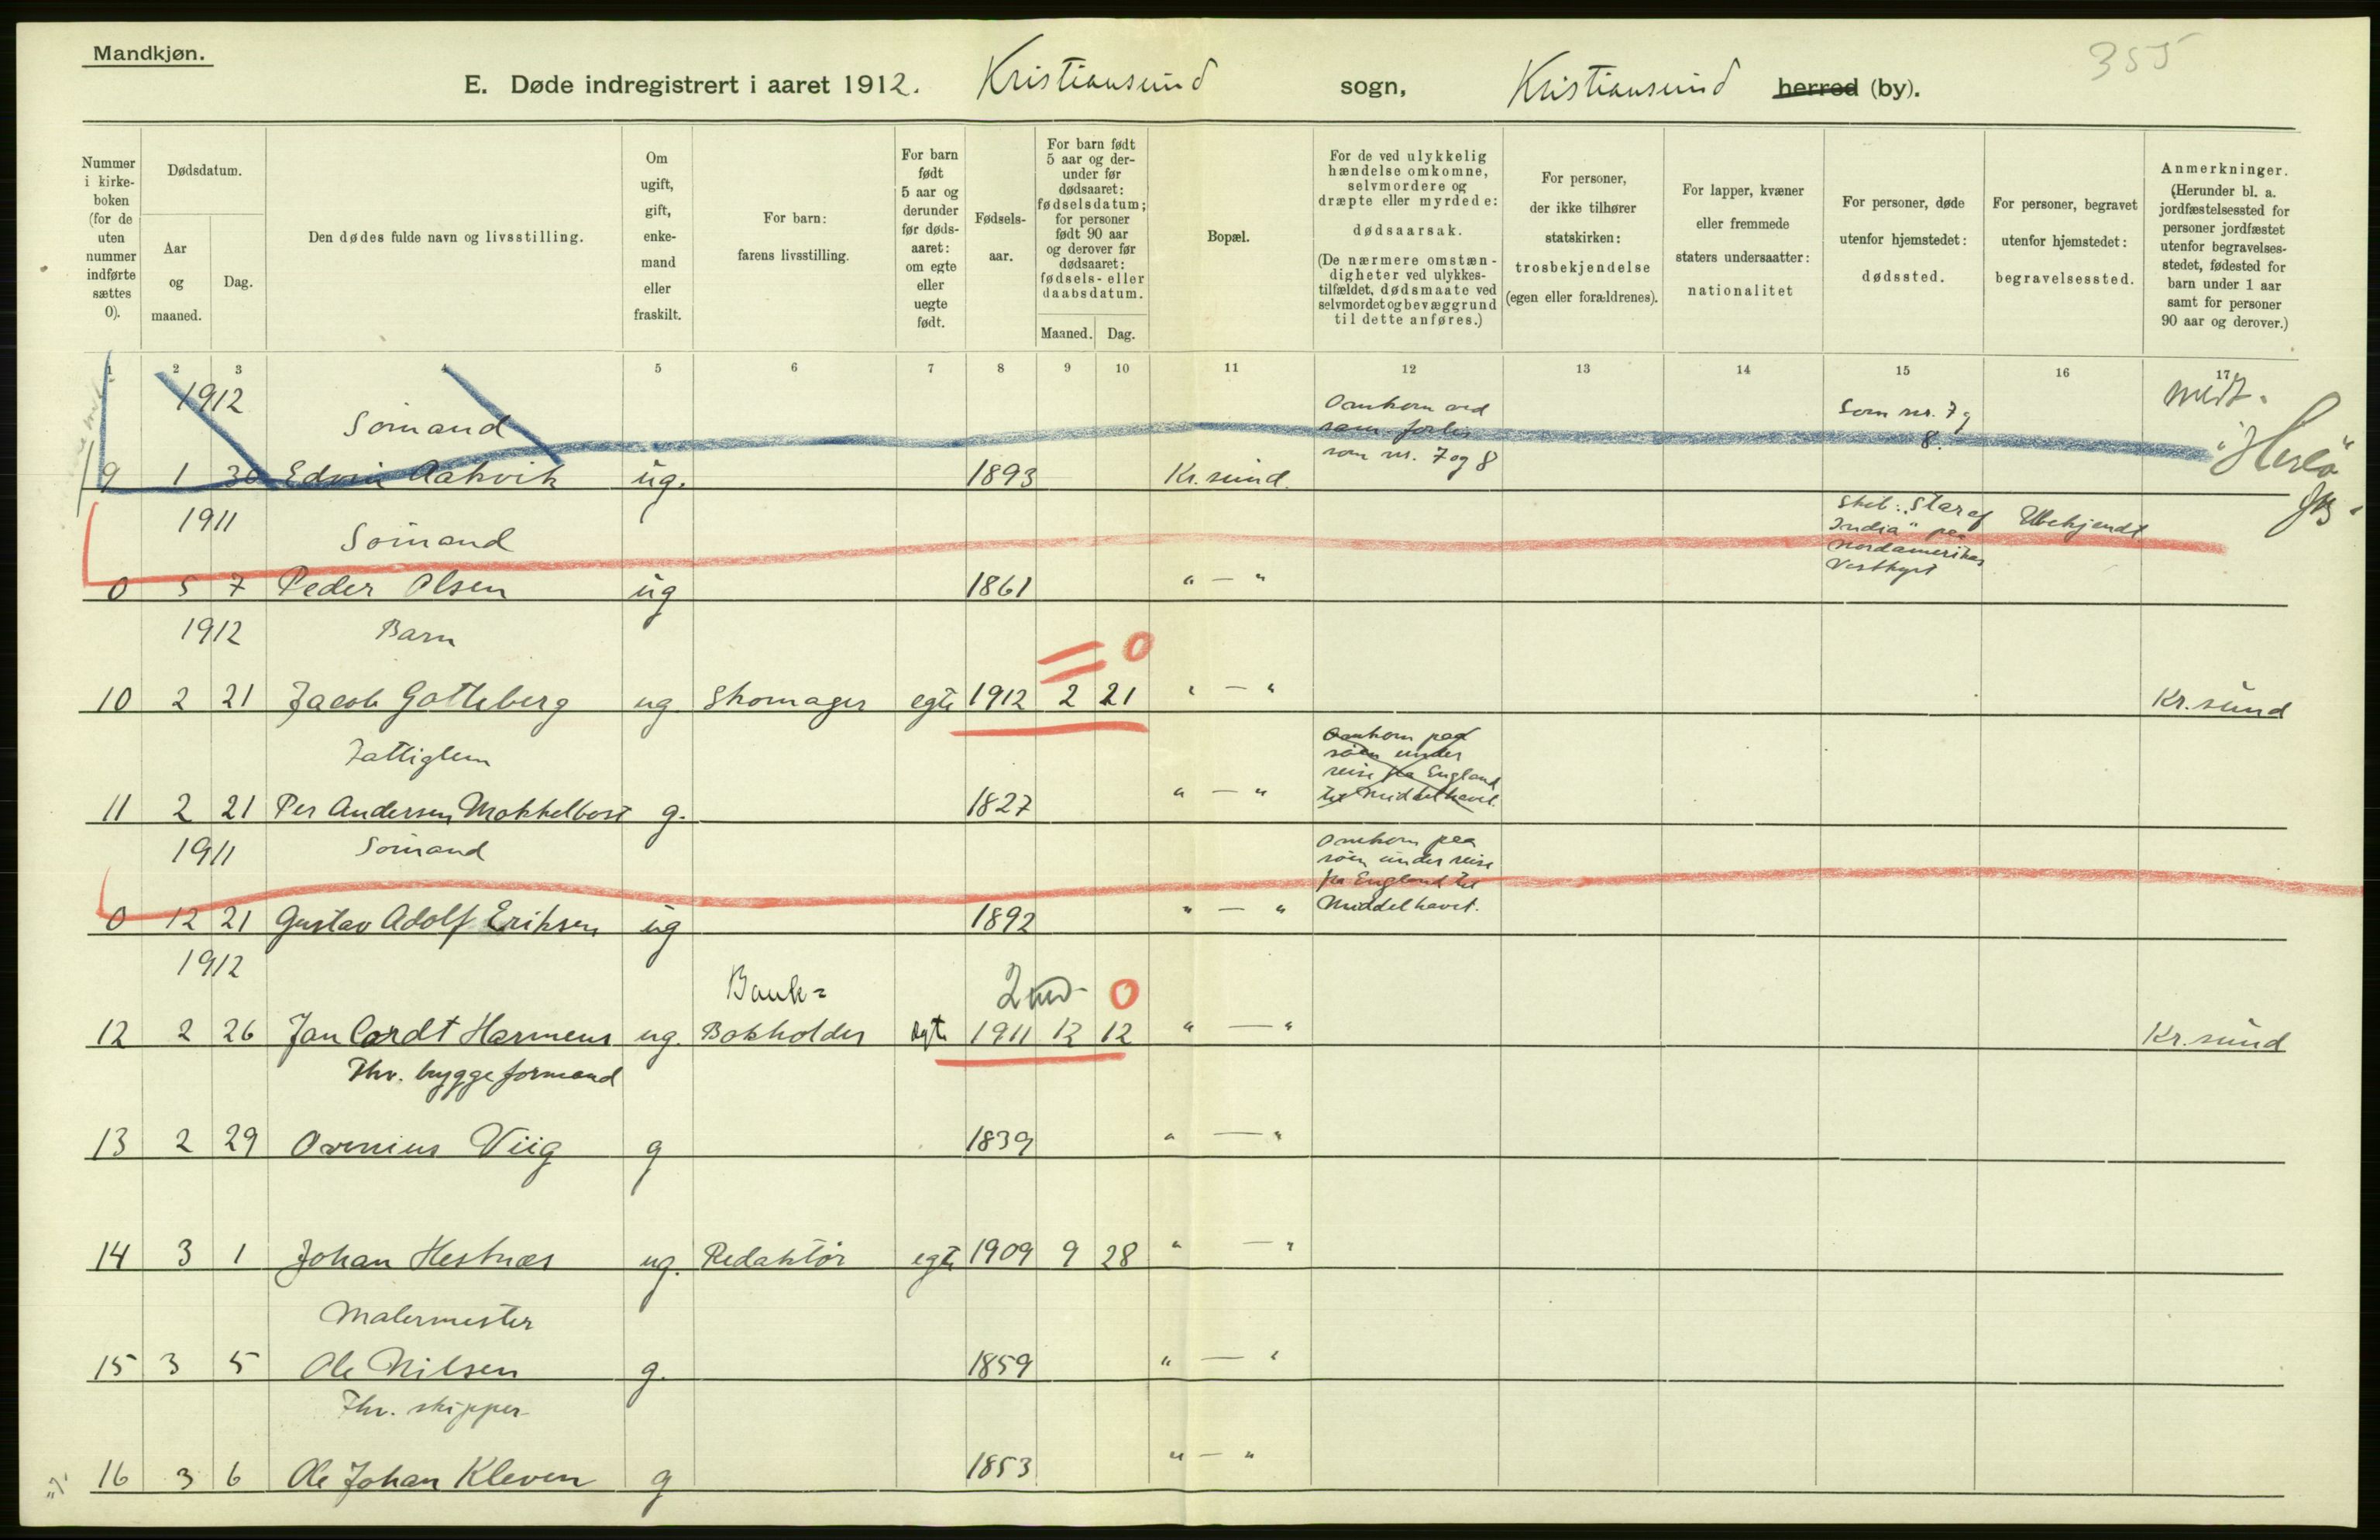 Mandkjøn.
355
E. Døde indregistrert i aaret 1912. Kristiansund sogn, Kristiansund herred (by).
Nummer i kirke-boken (for de uten nummer indførte sættes 0).
Dødsdatum.
Aar og maaned.
Dag.
Den dødes fulde navn og livsstilling.
Om ugift, gift, enke-mand eller fraskilt.
For barn: farens livsstilling.
For barn født 5 aar og derunder før døds-aaret: om egte eller uegte født.
Fødsels-aar.
For barn født 5 aar og der-under før dødsaaret: fødselsdatum; for personer født 90 aar og derover før dødsaaret: fødsels- eller daabsdatum.
Maaned. Dag.
Bopæl.
For de ved ulykkelig hændelse omkomne, selvmordere og dræpte eller myrdede: dødsaarsak. (De nærmere omstæn-digheter ved ulykkes-tilfældet, dødsmaate ved selvmordet og bevæggrund til dette anføres.)
For personer, der ikke tilhører statskirken: trosbekjendelse (egen eller forældrenes).
For lapper, kvæner eller fremmede staters undersaatter: nationalitet
For personer, døde utenfor hjemstedet: dødssted.
For personer, begravet utenfor hjemstedet: begravelsessted.
Anmerkninger. (Herunder bl. a. jordfæstelsessted for personer jordfæstet utenfor begravelses-stedet, fødested for barn under 1 aar samt for personer 90 aar og derover.)
1 2 3 4 5 6 7 8 9 10 11 12 13 14 15 16 17
1912 Sömand Omkom ved
samme forlis
som nr. 7 og 8
Som nr. 7 og
8.
9 1 30 Edvin Aakvik ug. 1893 Kr.sund.
1911 Sömand Skib: "Star of
India" paa
Nordamerikas
Vestkyst
Ubekjendt
0 5 7 Peder Olsen ug 1861 " — "
1912 Barn = 0
10 2 21 Jacob Gotteberg ug Skomager egte 1912 2 21 " — " Kr.sund
Fattiglem Omkom paa
söen under
reise fra England
til Middelhavet.
11 2 21 Per Andersen Mokkelbost g. 1827 " — "
1911 Sömand Omkom paa
söen under reise
fra England til
Middelhavet.
0 12 21 Gustav Adolf Eriksen ug 1892 " — "
1912 Bank= 2 md 0
12 2 26 Jan Cordt Harmens ug. Bokholder egte 1911 12 12 " — " Kr.sund
Fhv. byggeformand
13 2 29 Viig g 1839 " — "
14 3 1 Johan Hestnæs ug. Redaktör egte 1909 9 28 " — "
Malermester
15 3 5 Ole Nilsen g. 1859 " — "
Fhv. skipper
16 3 6 Ole Johan Kleven g 1853 " — "